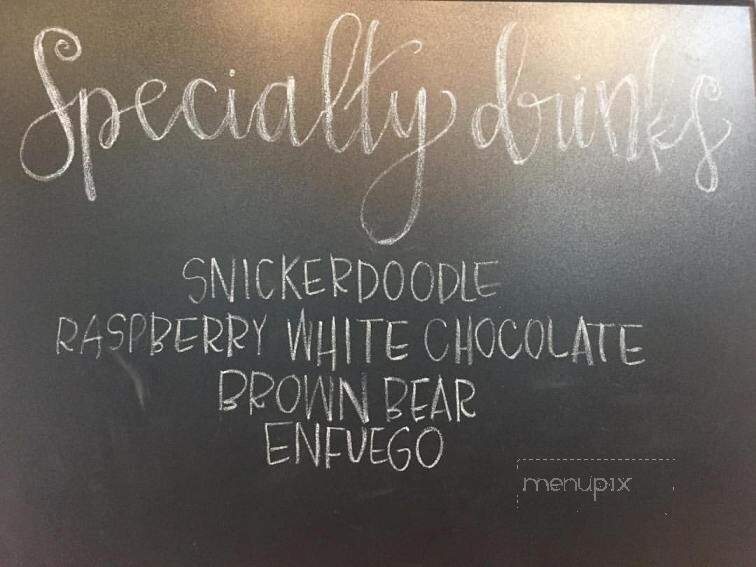 Specialty drinks
SNICKERDOODLE
RASPBERRY WHITE CHOCOLATE
BROWN BEAR
ENFUEGO
menupix